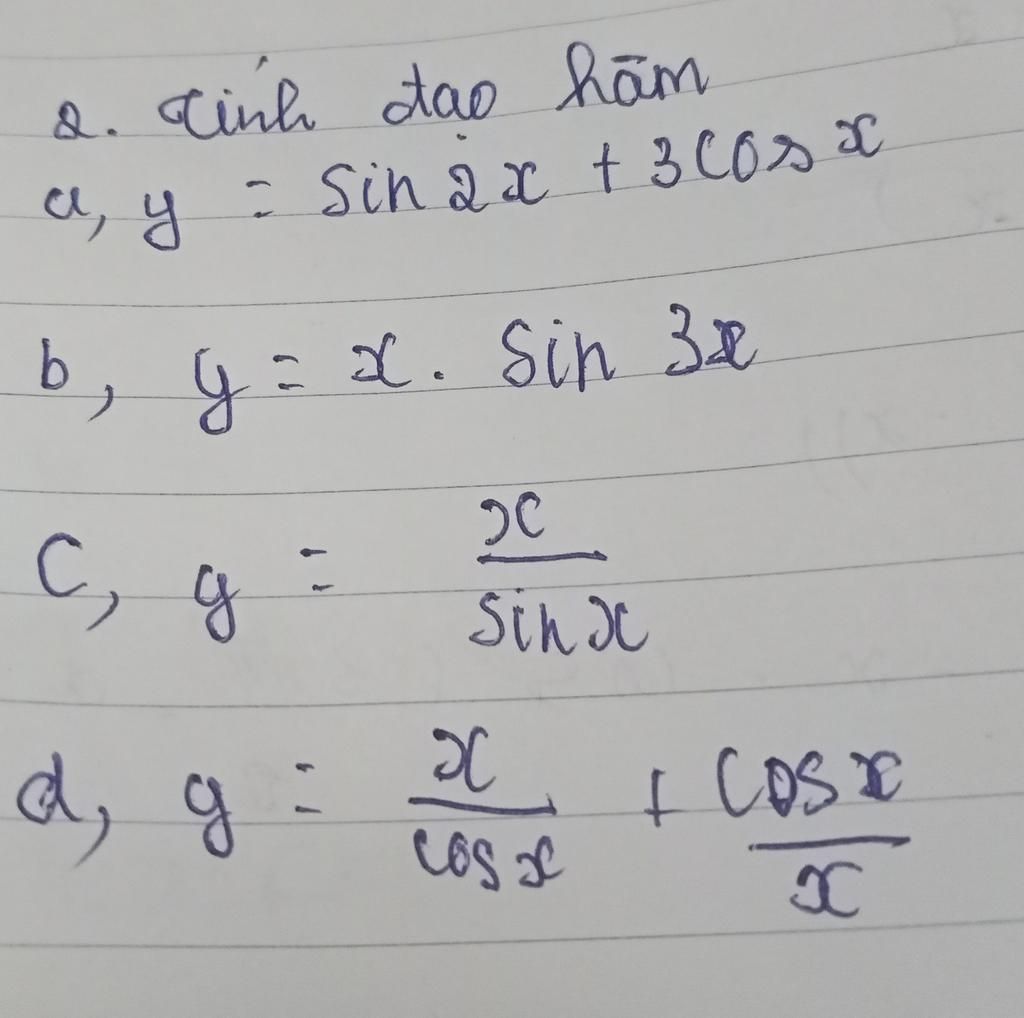 2. Tính đạo hàm
a, y = sin 2x + 3 cos x
b, y = x. sin 3x
c, y = x / sin x
d, y = x / cos x + cos x / x